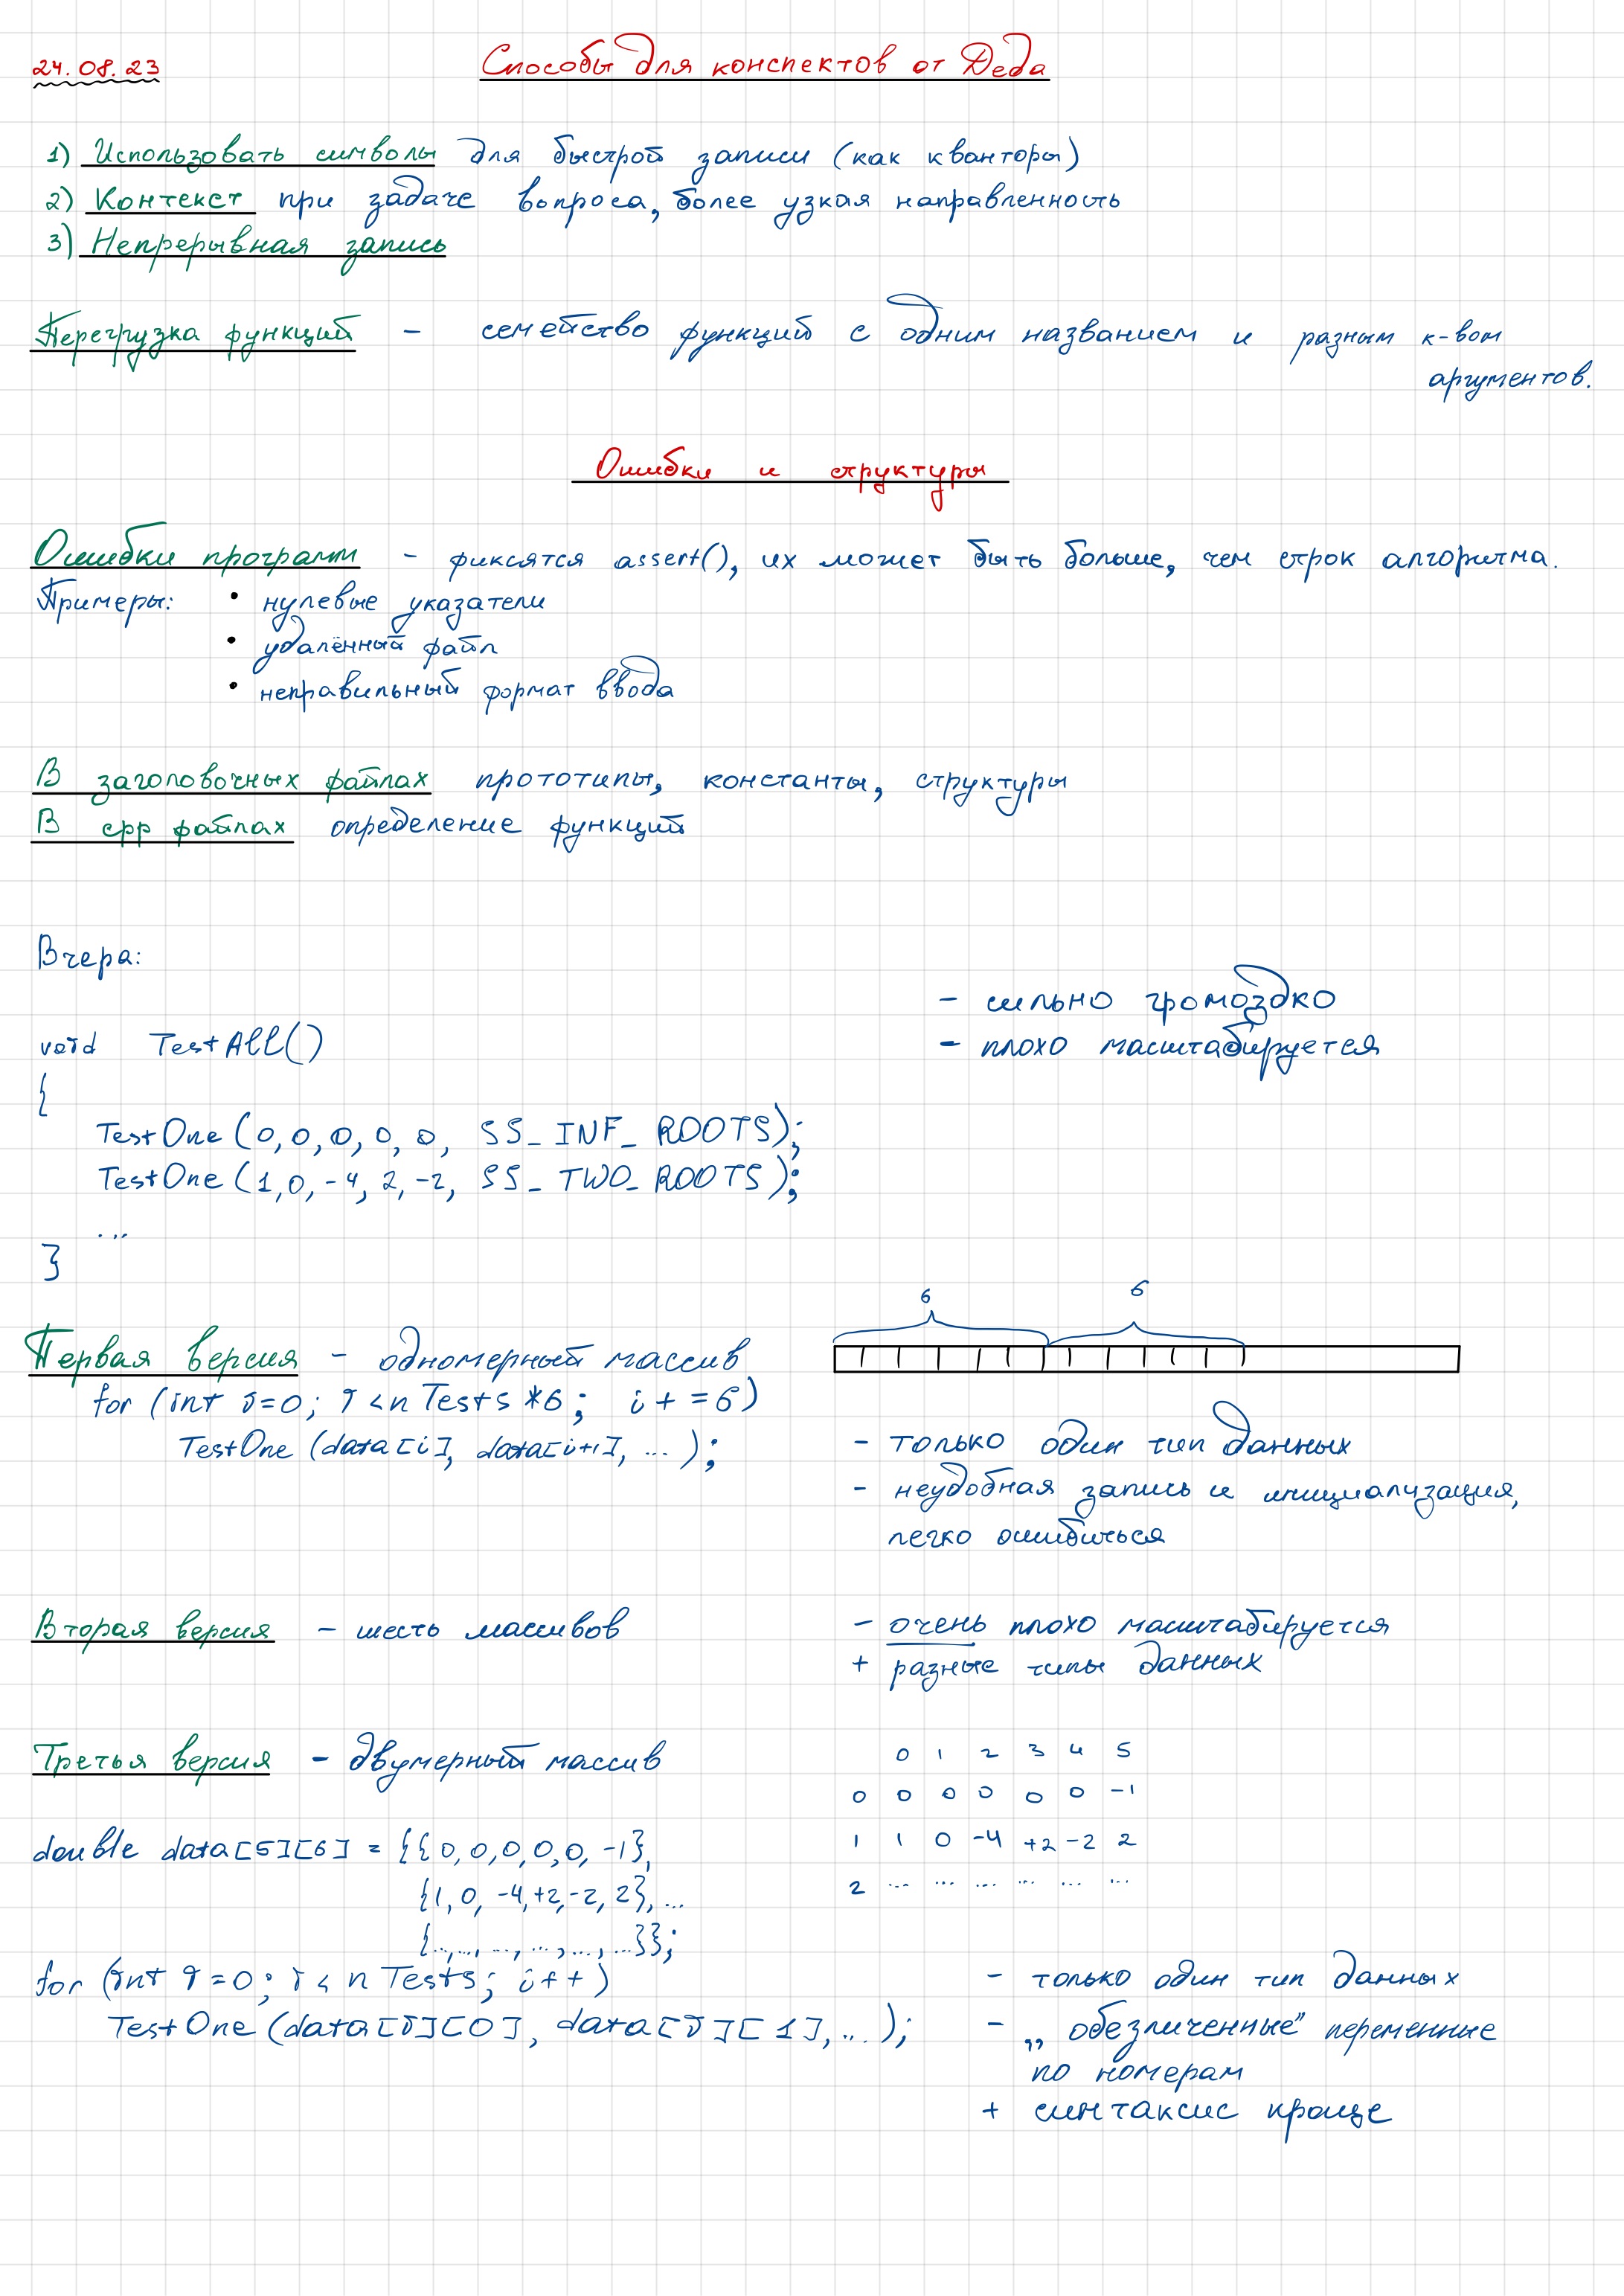 24.08.23
Способы для конспектов от Деда
1) Использовать символы для быстрой записи (как кванторы)
2) Контекст при задаче вопроса, более узкая направленность
3) Непрерывная запись
Перегрузка функций - семейство функций с одним названием и разным к-вом
аргументов.
Ошибки и структуры
Ошибки программ - фиксятся assert(), их может быть больше, чем строк алгоритма.
Примеры: • нулевые указатели
• удалённый файл
• неправильный формат ввода
В заголовочных файлах прототипы, константы, структуры
В cpp файлах определение функций
Вчера:
- сильно громоздко
void TestAll()
- плохо масштабируется
{
TestOne (0, 0, 0, 0, 0, SS_INF_ROOTS);
TestOne (1, 0, -4, 2, -2, SS_TWO_ROOTS);
...
}
6 6
Первая версия - одномерный массив
for (int i=0; i<nTests*6; i+=6)
TestOne (data[i], data[i+1], ...);
- только один тип данных
- неудобная запись и инициализация,
легко ошибиться
Вторая версия - шесть массивов
- очень плохо масштабируется
+ разные типы данных
Третья версия - двумерный массив
0 1 2 3 4 5
0 0 0 0 0 0 -1
1 1 0 -4 +2 -2 2
2 ... ... ... ... ... ...
double data[5][6] = {{0,0,0,0,0,-1},
{1, 0, -4,+2,-2, 2}, ...
{..., ..., ..., ..., ..., ...}};
for (int i=0; i < nTests; i++)
TestOne (data[i][0], data[i][1], ...);
- только один тип данных
- „обезличенные" переменные
по номерам
+ синтаксис проще